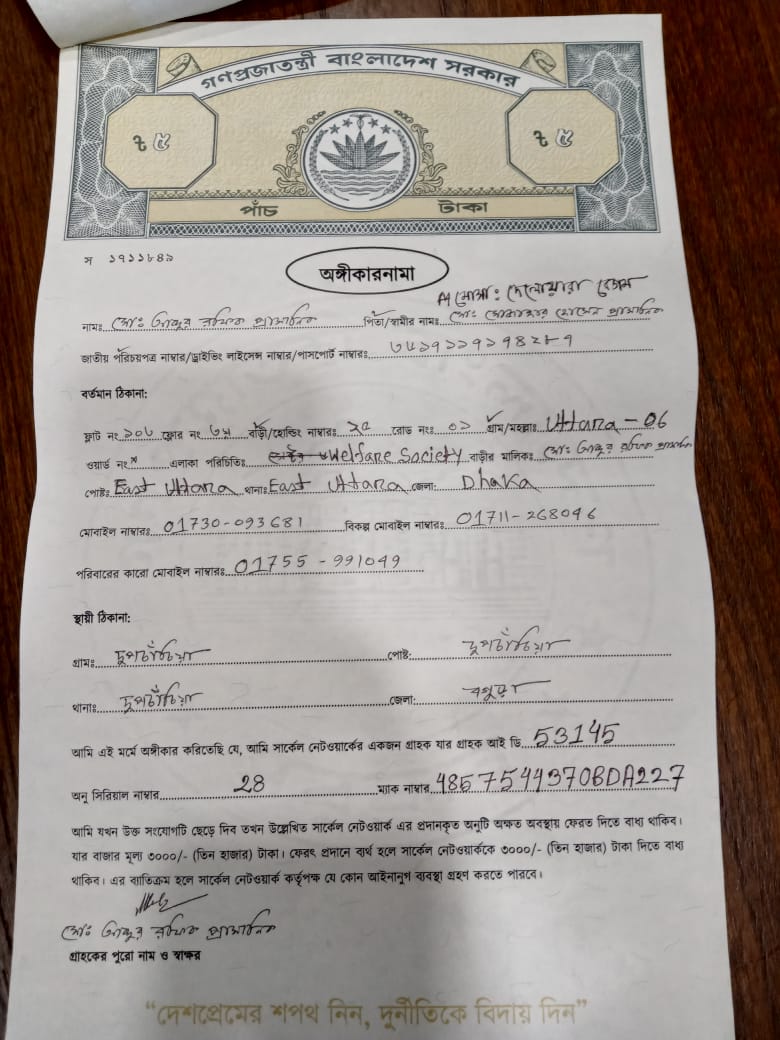 গণপ্রজাতন্ত্রী বাংলাদেশ সরকার
৳ ৫ ৳ ৫
পাঁচ টাকা
স ১৭১১৮৪৯
অঙ্গীকারনামা
মোসা: দেলোয়ারা বেগম
নামঃ মোঃ আব্দুর রফিক প্রামানিক পিতা/স্বামীর নামঃ মোঃ হোসেন প্রামানিক
জাতীয় পরিচয়পত্র নাম্বার/ড্রাইভিং লাইসেন্স নাম্বার/পাসপোর্ট নাম্বারঃ
বর্তমান ঠিকানা:
ফ্লাট নং ফ্লোর নং বাড়ী/হোল্ডিং নাম্বারঃ রোড নংঃ ০১ গ্রাম/মহল্লাঃ Uttara - 06
ওয়ার্ড নং এলাকা পরিচিতিঃ Welfare Society বাড়ীর মালিকঃ মোঃ আব্দুর রফিক প্রামানিক
পোষ্টঃ East Uttara থানাঃ East Uttara জেলা: Dhaka
মোবাইল নাম্বারঃ 01730-093681 বিকল্প মোবাইল নাম্বারঃ 01711-268046
পরিবারের কারো মোবাইল নাম্বারঃ 01755 - 991049
স্থায়ী ঠিকানা:
গ্রামঃ দুপচাঁচিয়া পোষ্ট: দুপচাঁচিয়া
থানাঃ দুপচাঁচিয়া জেলা: বগুড়া
আমি এই মর্মে অঙ্গীকার করিতেছি যে, আমি সার্কেল নেটওয়ার্কের একজন গ্রাহক যার গ্রাহক আই ডি 53145
অনু সিরিয়াল নাম্বার 28 ম্যাক নাম্বার 4857544370BDA227
আমি যখন উক্ত সংযোগটি ছেড়ে দিব তখন উল্লেখিত সার্কেল নেটওয়ার্ক এর প্রদানকৃত অনুটি অক্ষত অবস্থায় ফেরত দিতে বাধ্য থাকিব।
যার বাজার মূল্য ৩০০০/- (তিন হাজার) টাকা। ফেরৎ প্রদানে ব্যর্থ হলে সার্কেল নেটওয়ার্ককে ৩০০০/- (তিন হাজার) টাকা দিতে বাধ্য
থাকিব। এর ব্যতিক্রম হলে সার্কেল নেটওয়ার্ক কর্তৃপক্ষ যে কোন আইনানুগ ব্যবস্থা গ্রহণ করতে পারবে।
মোঃ আব্দুর রফিক প্রামানিক
গ্রাহকের পুরো নাম ও স্বাক্ষর
“দেশপ্রেমের শপথ নিন, দুর্নীতিকে বিদায় দিন”